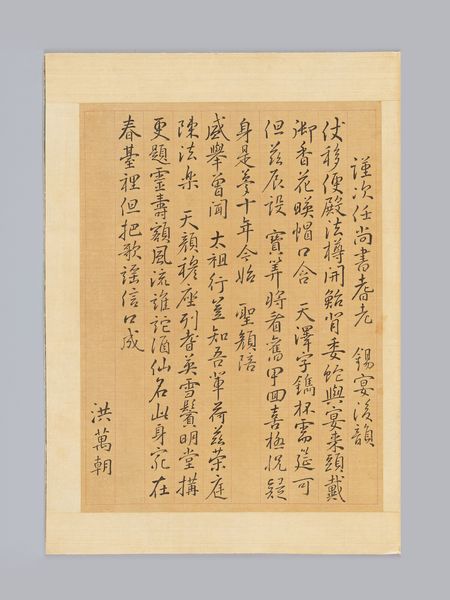 謹次任尚書耆老 錫宴後韻
仗移便殿法樽開鮐背委蛇與宴來頭戴
御香花暎帽口含 天澤字鐫杯需筵可
但茲辰設 寶算將看舊甲回喜極怳疑
身是夢十年今始 聖顏陪
盛舉曾聞 太祖行豈知吾輩荷茲榮庭
陳法樂 天顏穆座列耆英雪鬢明堂搆
更題靈壽額風流誰詑酒仙名此身宛在
春臺裡但把歌謠信口成
洪萬朝